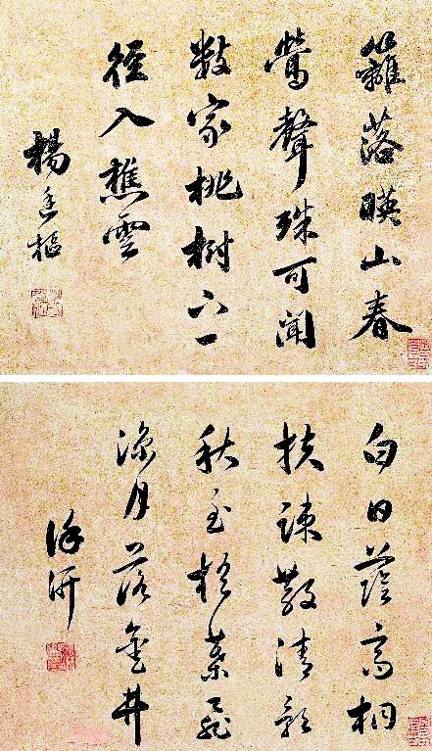 籬落暎山春
鶯聲殊可聞
數家桃樹下一
徑入樵雲
楊廷樞
白日蔭高桐
扶疎散清影
秋至梧葉飛
涼月落金井
徐汧